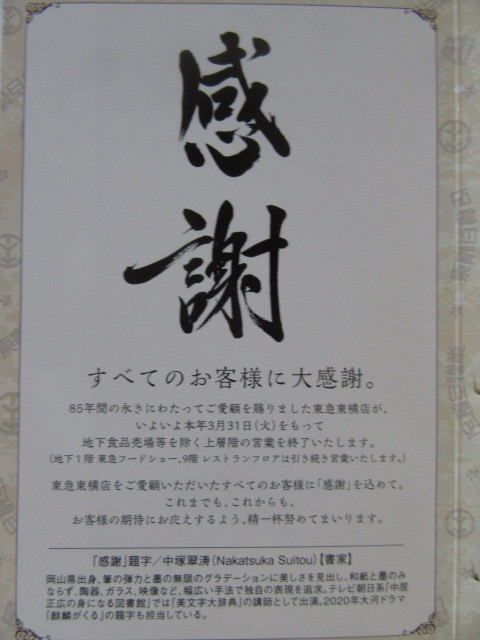 感謝
すべてのお客様に大感謝。
85年間の永きにわたってご愛顧を賜りました東急東横店が、
いよいよ本年3月31日(火)をもって
地下食品売場等を除く上層階の営業を終了いたします。
(地下1階 東急フードショー、9階 レストランフロアは引き続き営業いたします。)
東急東横店をご愛顧いただいたすべてのお客様に「感謝」を込めて。
これまでも、これからも、
お客様の期待にお応えするよう、精一杯努めてまいります。
「感謝」題字／中塚翠涛(Nakatsuka Suitou)【書家】
岡山県出身。筆の弾力と墨の無限のグラデーションに美しさを見出し、和紙と墨のみ
ならず、陶器、ガラス、映像など、幅広い手法で独自の表現を追求。テレビ朝日系「中居
正広の身になる図書館」では「美文字大辞典」の講師として出演。2020年大河ドラマ
「麒麟がくる」の題字も担当している。